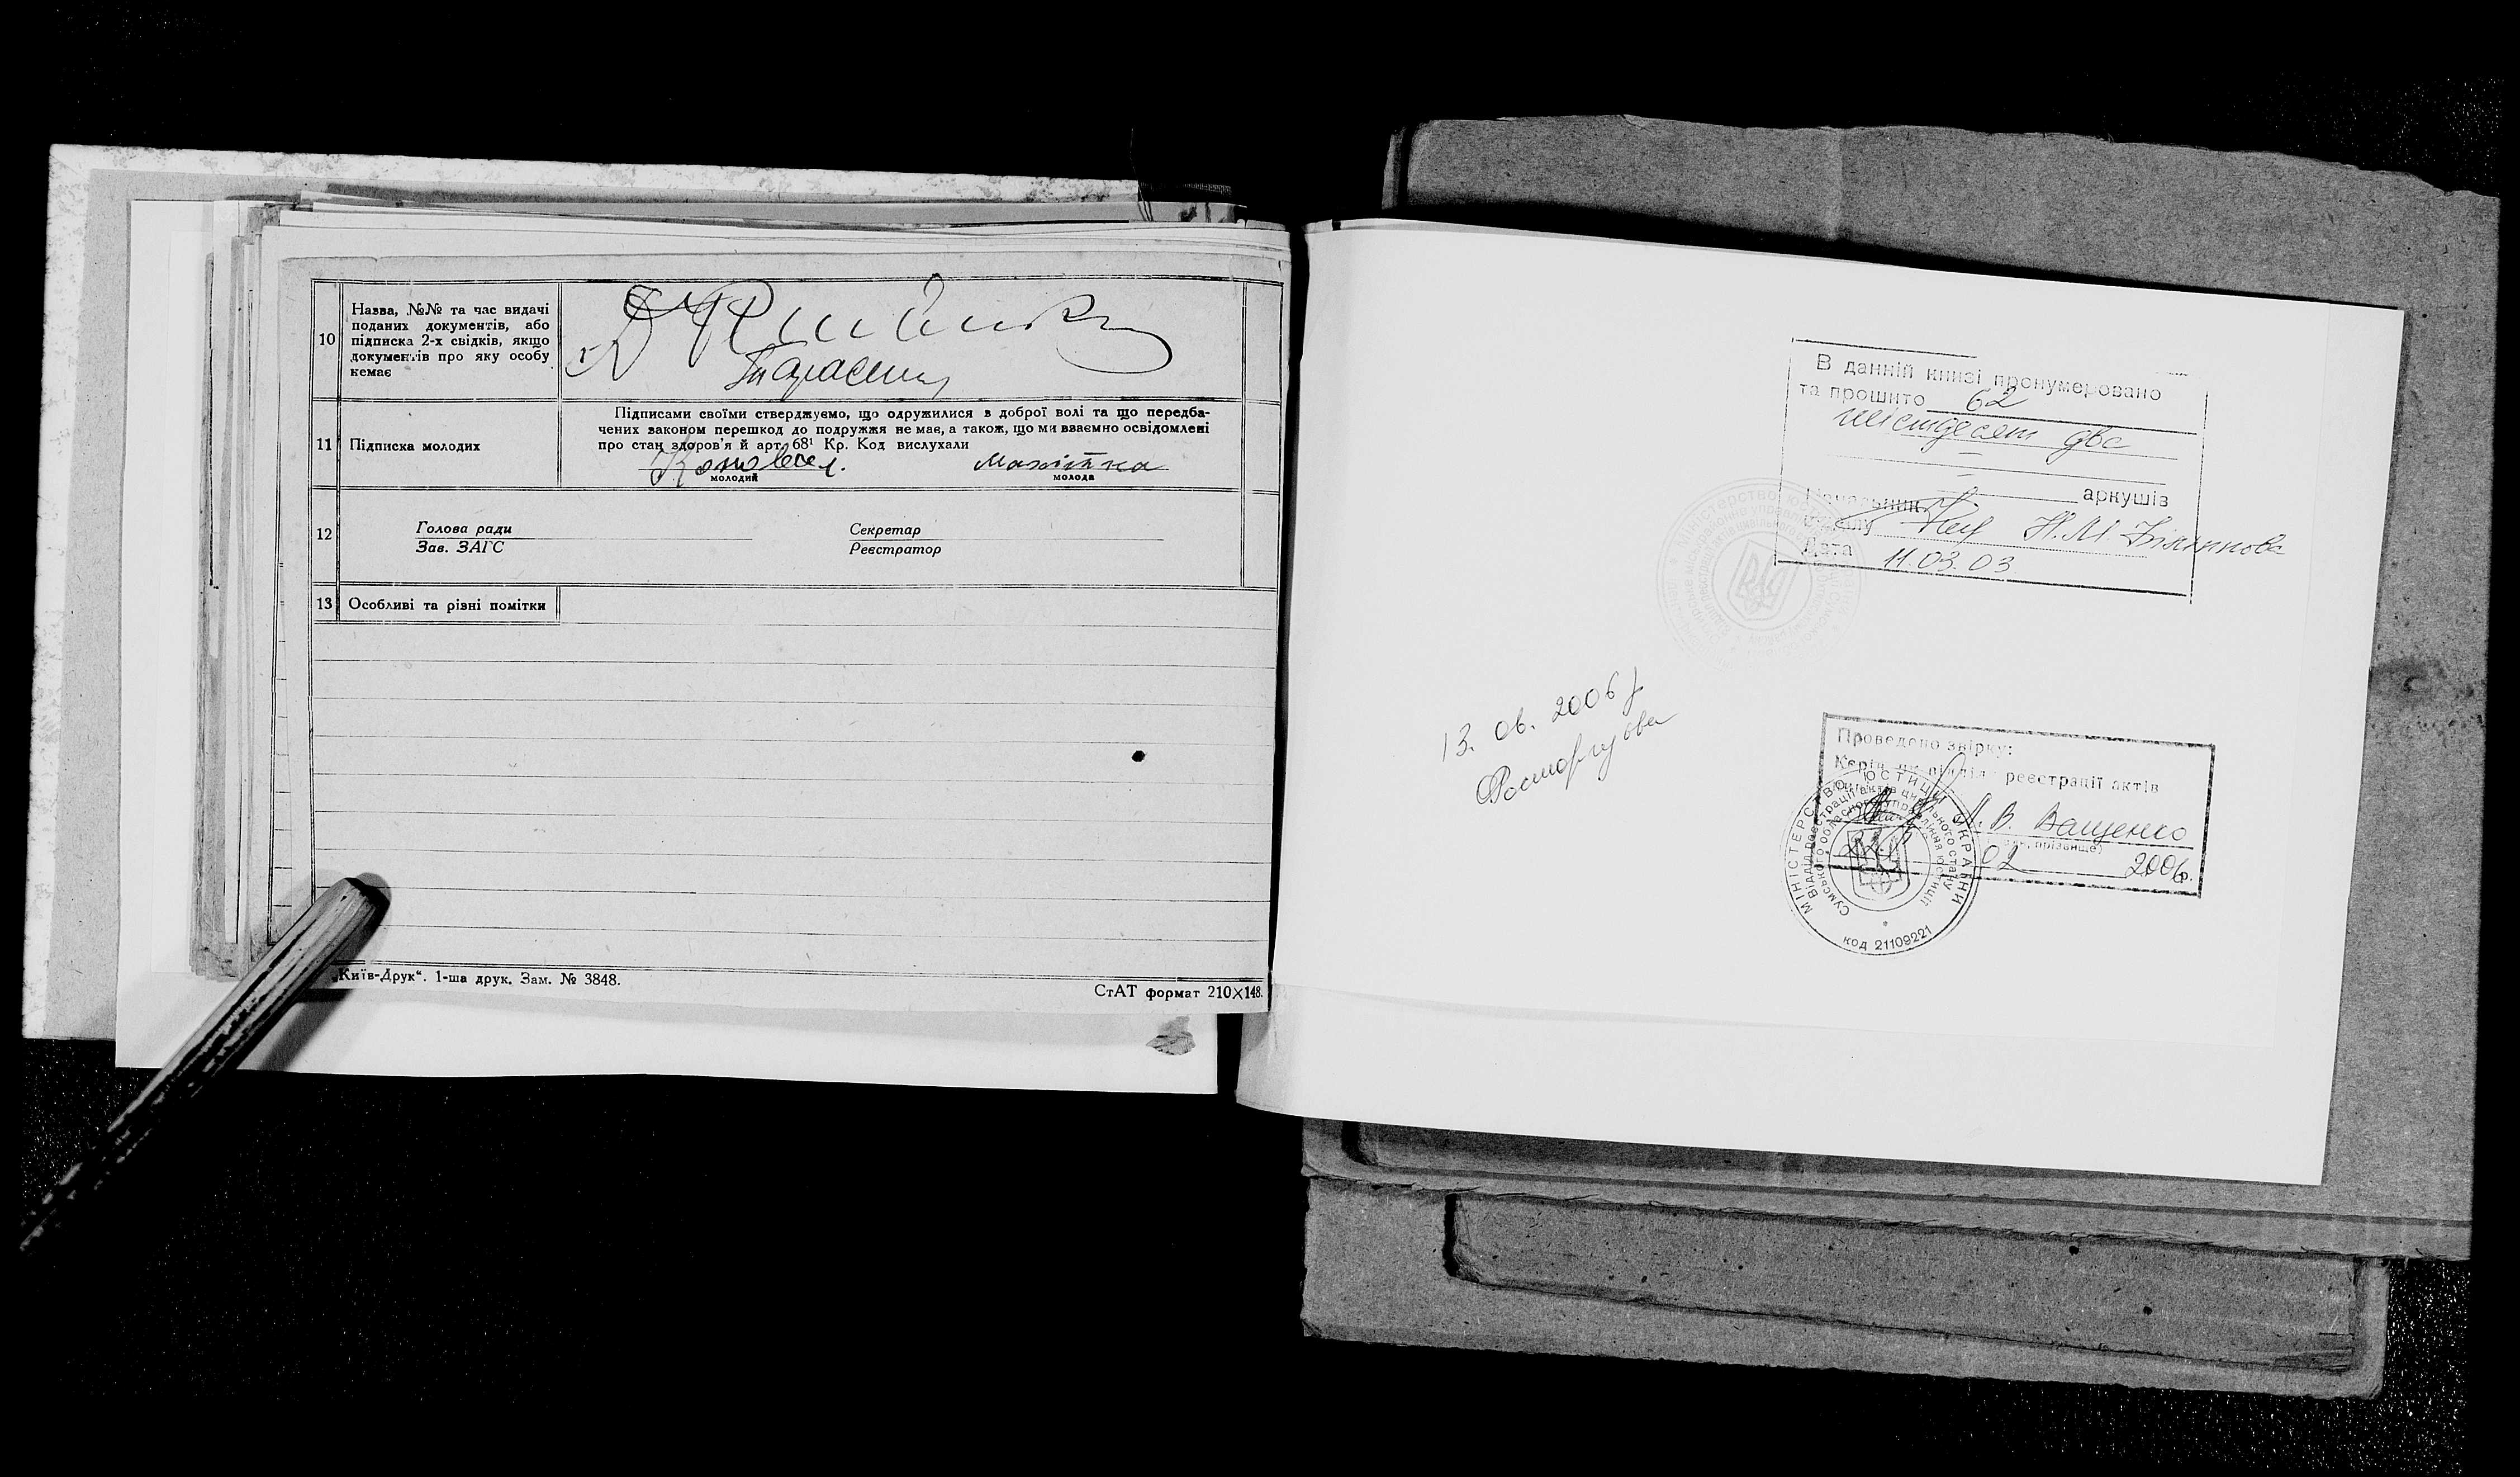 10
Назва, №№ та час видачі
поданих документів, або
підписка 2-х свідків, якщо
документів про яку особу
немає
11
Підписка молодих
Підписами своїми стверджуємо, що одружилися з доброї волі та що передба-
чених законом перешкод до подружжя не має, а також, що ми взаємно освідомлені
про стан здоров'я й арт. 68¹ Кр. Код вислухали
молодий
молода
12
Голова ради
Зав. ЗАГС
Секретар
Реєстратор
13
Особливі та різні помітки
„Київ-Друк“. 1-ша друк. Зам. № 3848.
СтАТ формат 210×148.
В данній книзі пронумеровано
та прошито 62
шістдесят два
аркушів
Начальник
відділу Н.М.
Дата 11.03.03
13. 06. 2006 р
Проведено звірку:
реєстрації актів
В. Ващенко
02 2006р.
МІНІСТЕРСТВО ЮСТИЦІЇ УКРАЇНИ
Відділ реєстрації актів цивільного стану
Сумського обласного управління юстиції
код 21109221